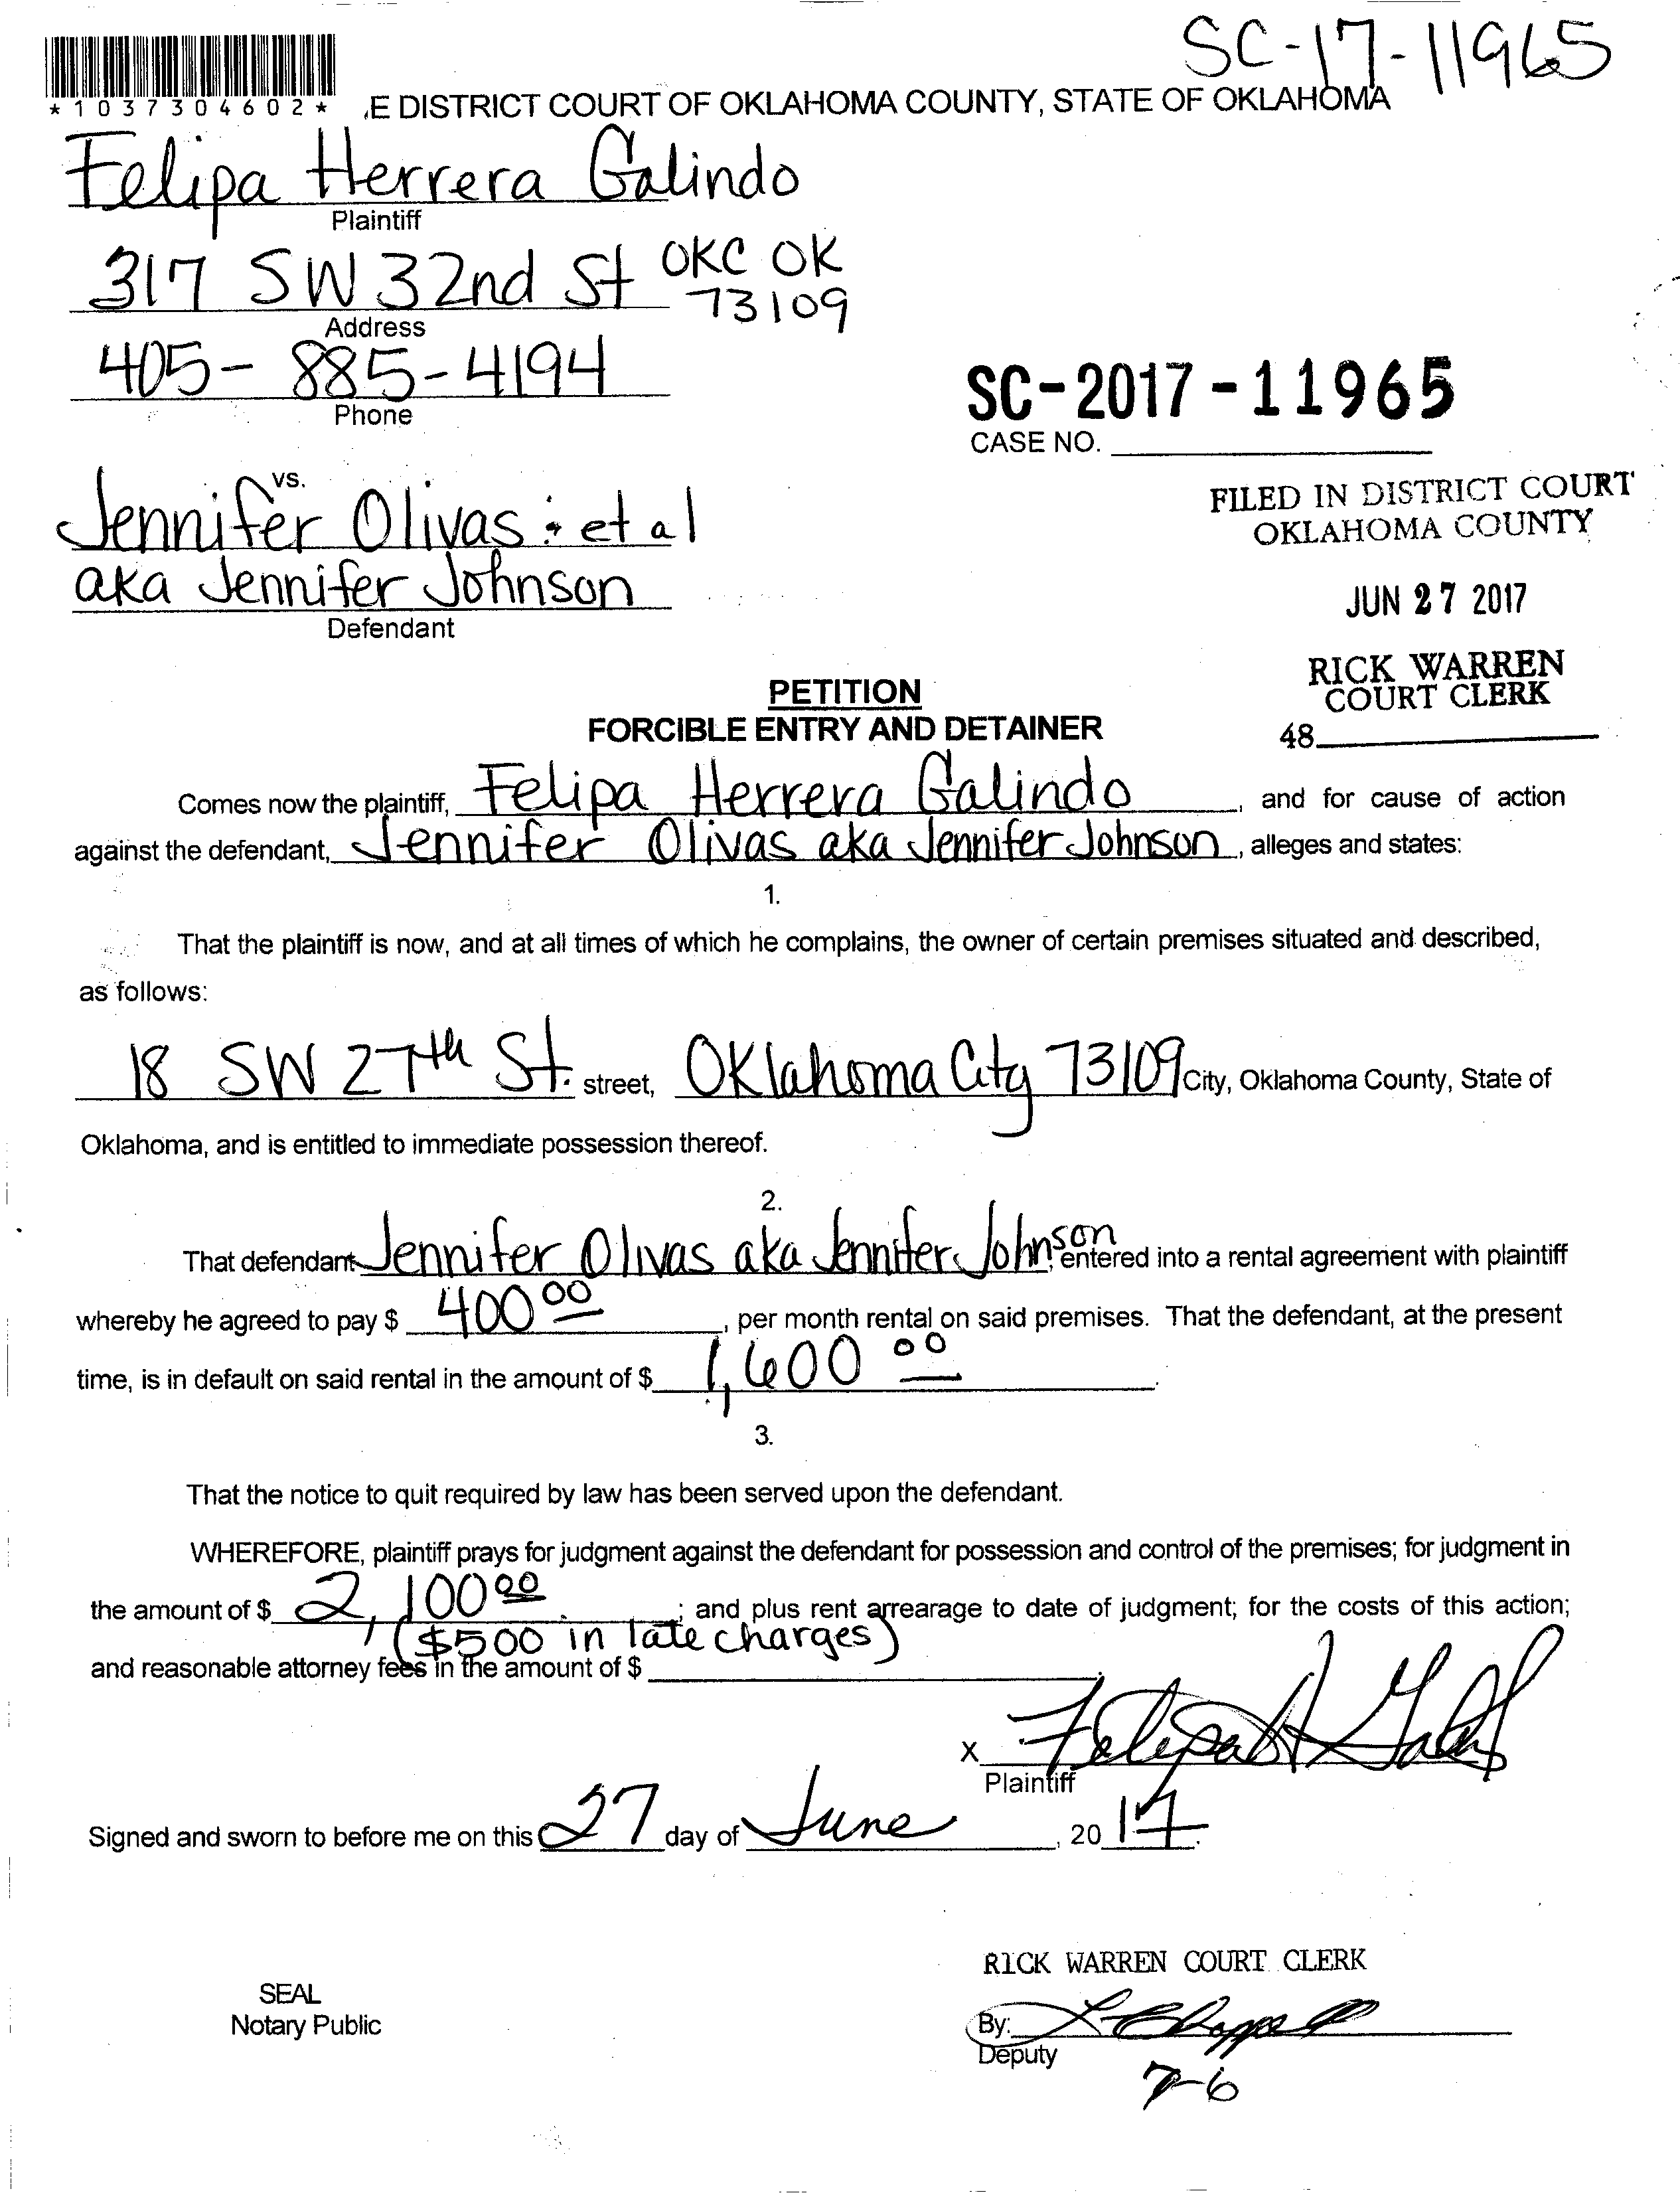 SC-17-11965
*1037304602*
,E DISTRICT COURT OF OKLAHOMA COUNTY, STATE OF OKLAHOMA
Felipa Herrera Galindo
Plaintiff
317 SW 32nd St OKC OK
73109
Address
405-885-4194
Phone
SC-2017-11965
CASE NO.
vs.
Jennifer Olivas : et al
aka Jennifer Johnson
Defendant
FILED IN DISTRICT COURT
OKLAHOMA COUNTY
JUN 27 2017
RICK WARREN
COURT CLERK
48
PETITION
FORCIBLE ENTRY AND DETAINER
Comes now the plaintiff, Felipa Herrera Galindo, and for cause of action
against the defendant, Jennifer Olivas aka Jennifer Johnson, alleges and states:
1.
That the plaintiff is now, and at all times of which he complains, the owner of certain premises situated and described,
as follows:
18 SW 27th St. street, Oklahoma City 73109 City, Oklahoma County, State of
Oklahoma, and is entitled to immediate possession thereof.
2.
That defendant Jennifer Olivas aka Jennifer Johnson, entered into a rental agreement with plaintiff
whereby he agreed to pay $ 400 00, per month rental on said premises. That the defendant, at the present
time, is in default on said rental in the amount of $ 1,600 00.
3.
That the notice to quit required by law has been served upon the defendant.
WHEREFORE, plaintiff prays for judgment against the defendant for possession and control of the premises; for judgment in
the amount of $ 2,100 00; and plus rent arrearage to date of judgment; for the costs of this action;
($500 in late charges)
and reasonable attorney fees in the amount of $
x Felipa H Galindo
Plaintiff
Signed and sworn to before me on this 27 day of June, 2017.
RICK WARREN COURT CLERK
SEAL
Notary Public
By: L Chappell
Deputy
7-6